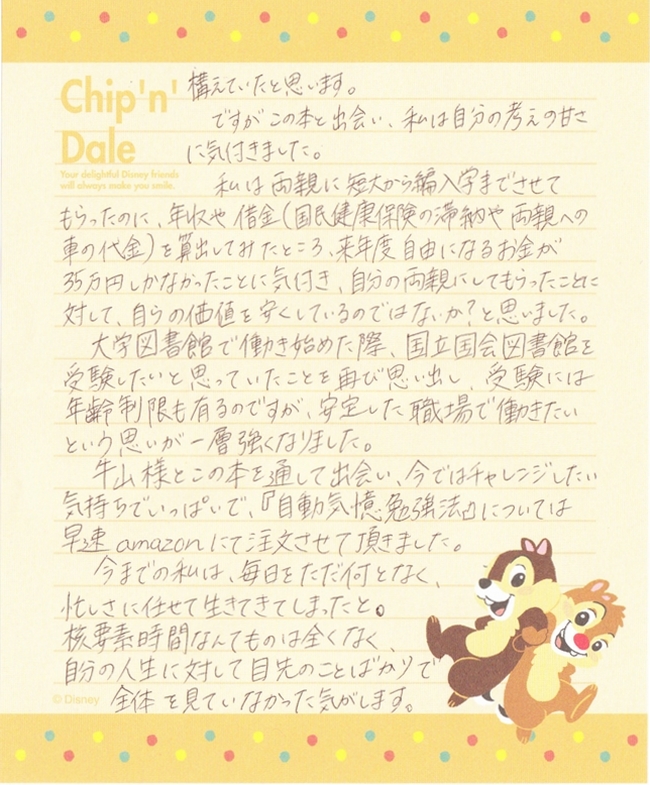 Chip'n'
Dale
Your delightful Disney friends
will always make you smile.
構えていたと思います。
ですがこの本と出会い、私は自分の考えの甘さ
に気付きました。
私は両親に短大から編入学までさせて
もらったのに、年収や借金(国民健康保険の滞納や両親への
車の代金)を算出してみたところ、来年度自由になるお金が
35万円しかなかったことに気付き、自分の両親にしてもらったことに
対して、自らの価値を安くしているのではないか?と思いました。
大学図書館で働き始めた際、国立国会図書館を
受験したいと思っていたことを再び思い出し、受験には
年齢制限も有るのですが、安定した職場で働きたい
という思いが一層強くなりました。
牛山様とこの本を通して出会い、今ではチャレンジしたい
気持ちでいっぱいで、『自動気憶勉強法』については
早速amazonにて注文させて頂きました。
今までの私は、毎日をただ何となく、
忙しさに任せて生きてきてしまったと。
核要素時間なんてものは全くなく、
自分の人生に対して目先のことばかりで
全体を見ていなかった気がします。
© Disney